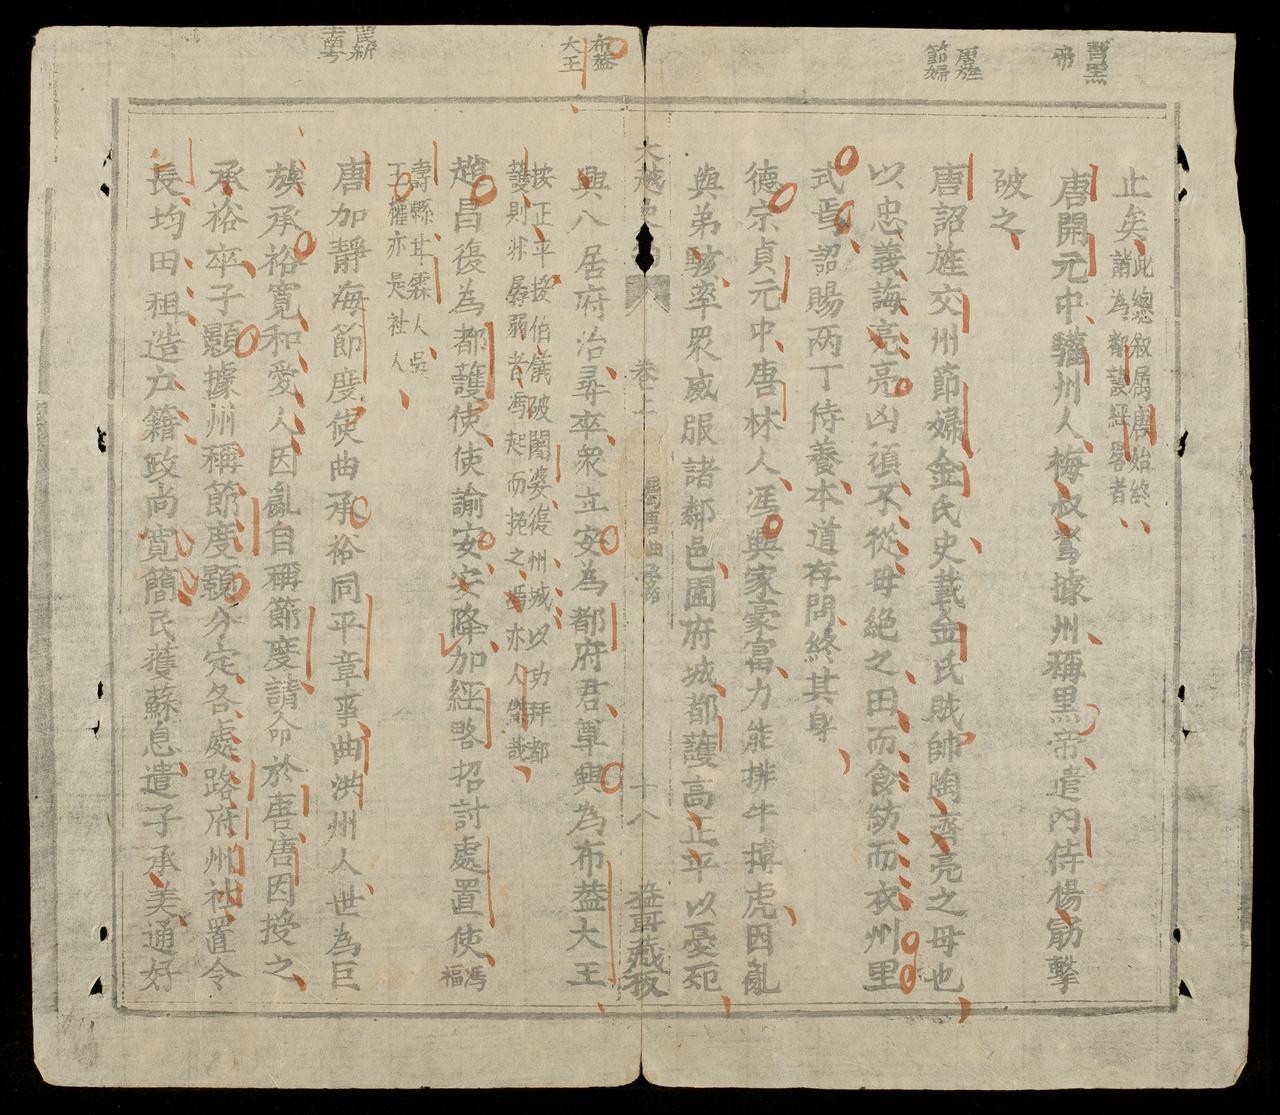 梅黑
帝
唐旌
節婦
止矣此總叙属唐始終
諸為都護經畧者
唐開元中驩州人梅叔鸞據州稱黒帝遣內侍楊勗擊
破之
唐詔旌交州節婦金氏史載金氏賊帥陶齊亮之母也
以忠義誨亮亮凶頑不從母絶之田而食紡而衣州里
式焉詔賜两丁侍養本道存問終其身
德宗貞元中唐林人馮興家豪富力能排牛搏虎因亂
與弟駭率眾威服諸鄰邑圍府城都護高正平以憂死
大越史約 卷二 屬唐曲承裕 十八 益軒藏板
布葢
大王
興入居府治尋卒眾立安為都府君尊興為布葢大王
按正平接伯儀破闍婆復州城以功拜都
護則非孱弱者馮起而挹之馮亦人傑哉
趙昌復為都護使使諭安安降加經略招討處置使馮
福
壽縣甘霖人吳
王權亦是社人
曲新
美号
唐加靜海節度使曲承裕同平章事曲洪州人世為巨
族承裕寬和愛人因亂自稱節度請命於唐唐因授之
承裕卒子顥據州稱節度顥分定各處路府州社置令
長均田租造户籍政尚寬簡民獲蘇息遣子承美通好